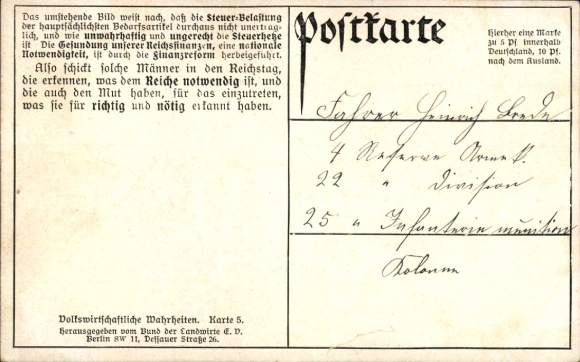 Das umstehende Bild weist nach, daß die Steuer-Belastung
der hauptsächlichsten Bedarfsartikel durchaus nicht unerträg-
lich, und wie unwahrhaftig und ungerecht die Steuerhetze
ist. Die Gesundung unserer Reichsfinanzen, eine nationale
Notwendigkeit, ist durch die Finanzreform herbeigeführt.
Also schickt solche Männer in den Reichstag,
die erkennen, was dem Reiche notwendig ist, und
die auch den Mut haben, für das einzutreten,
was sie für richtig und nötig erkannt haben.
Volkswirtschaftliche Wahrheiten. Karte 5.
Herausgegeben vom Bund der Landwirte E. V.
Berlin SW 11, Dessauer Straße 26.
Postkarte
Hierher eine Marke
zu 5 Pf innerhalb
Deutschland, 10 Pf.
nach dem Ausland.
Fahrer Heinrich Brede
4 Reserve Armee K.
22 " Division
25 " Infanterie munition
Kolonne